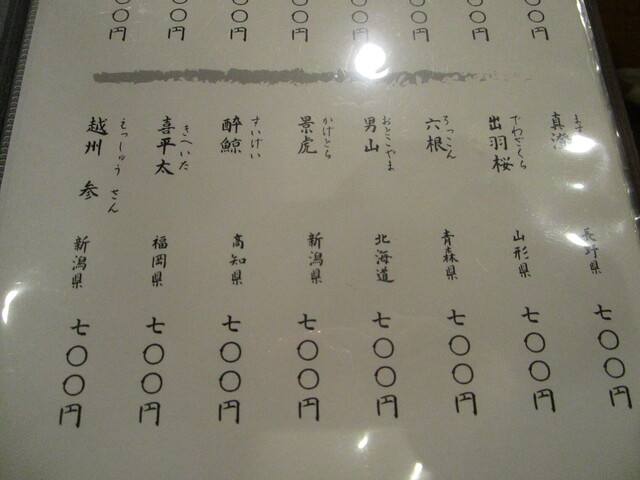 〇円
〇円
〇円
〇円
〇円
〇円
〇円
〇円
真澄 長野県 七〇〇円
でわざくら
出羽桜 山形県 七〇〇円
ろっこん
六根 青森県 七〇〇円
おとこやま
男山 北海道 七〇〇円
かげとら
景虎 新潟県 七〇〇円
すいげい
酔鯨 高知県 七〇〇円
きへいた
喜平太 福岡県 七〇〇円
えっしゅう さん
越州 参 新潟県 七〇〇円